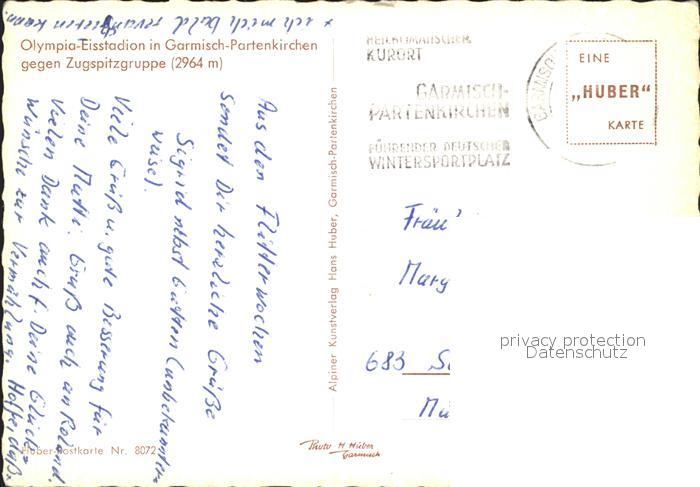 Olympia-Eisstadion in Garmisch-Partenkirchen
gegen Zugspitzgruppe (2964 m)
HEILKLIMATISCHER
KURORT
GARMISCH-
PARTENKIRCHEN
FÜHRENDER DEUTSCHER
WINTERSPORTPLATZ
EINE
„HUBER"
KARTE
Aus den Flitterwochen
sendet Dir herzliche Grüße
Sigrid nebst Gatten (unbekannter-
weise).
Viele Grüße u. gute Besserung für
Deine Mutti. Gruß auch an Roland.
Vielen Dank auch f. Deine Glück-
wünsche zur Vermählung. Hoffe daß
x ich mich bald revanchieren kann.
Alpiner Kunstverlag Hans Huber, Garmisch-Partenkirchen
Fräu
Marg
683 S
Mü
privacy protection
Datenschutz
Huber-Postkarte Nr. 8072
Photo H. Huber
Garmisch